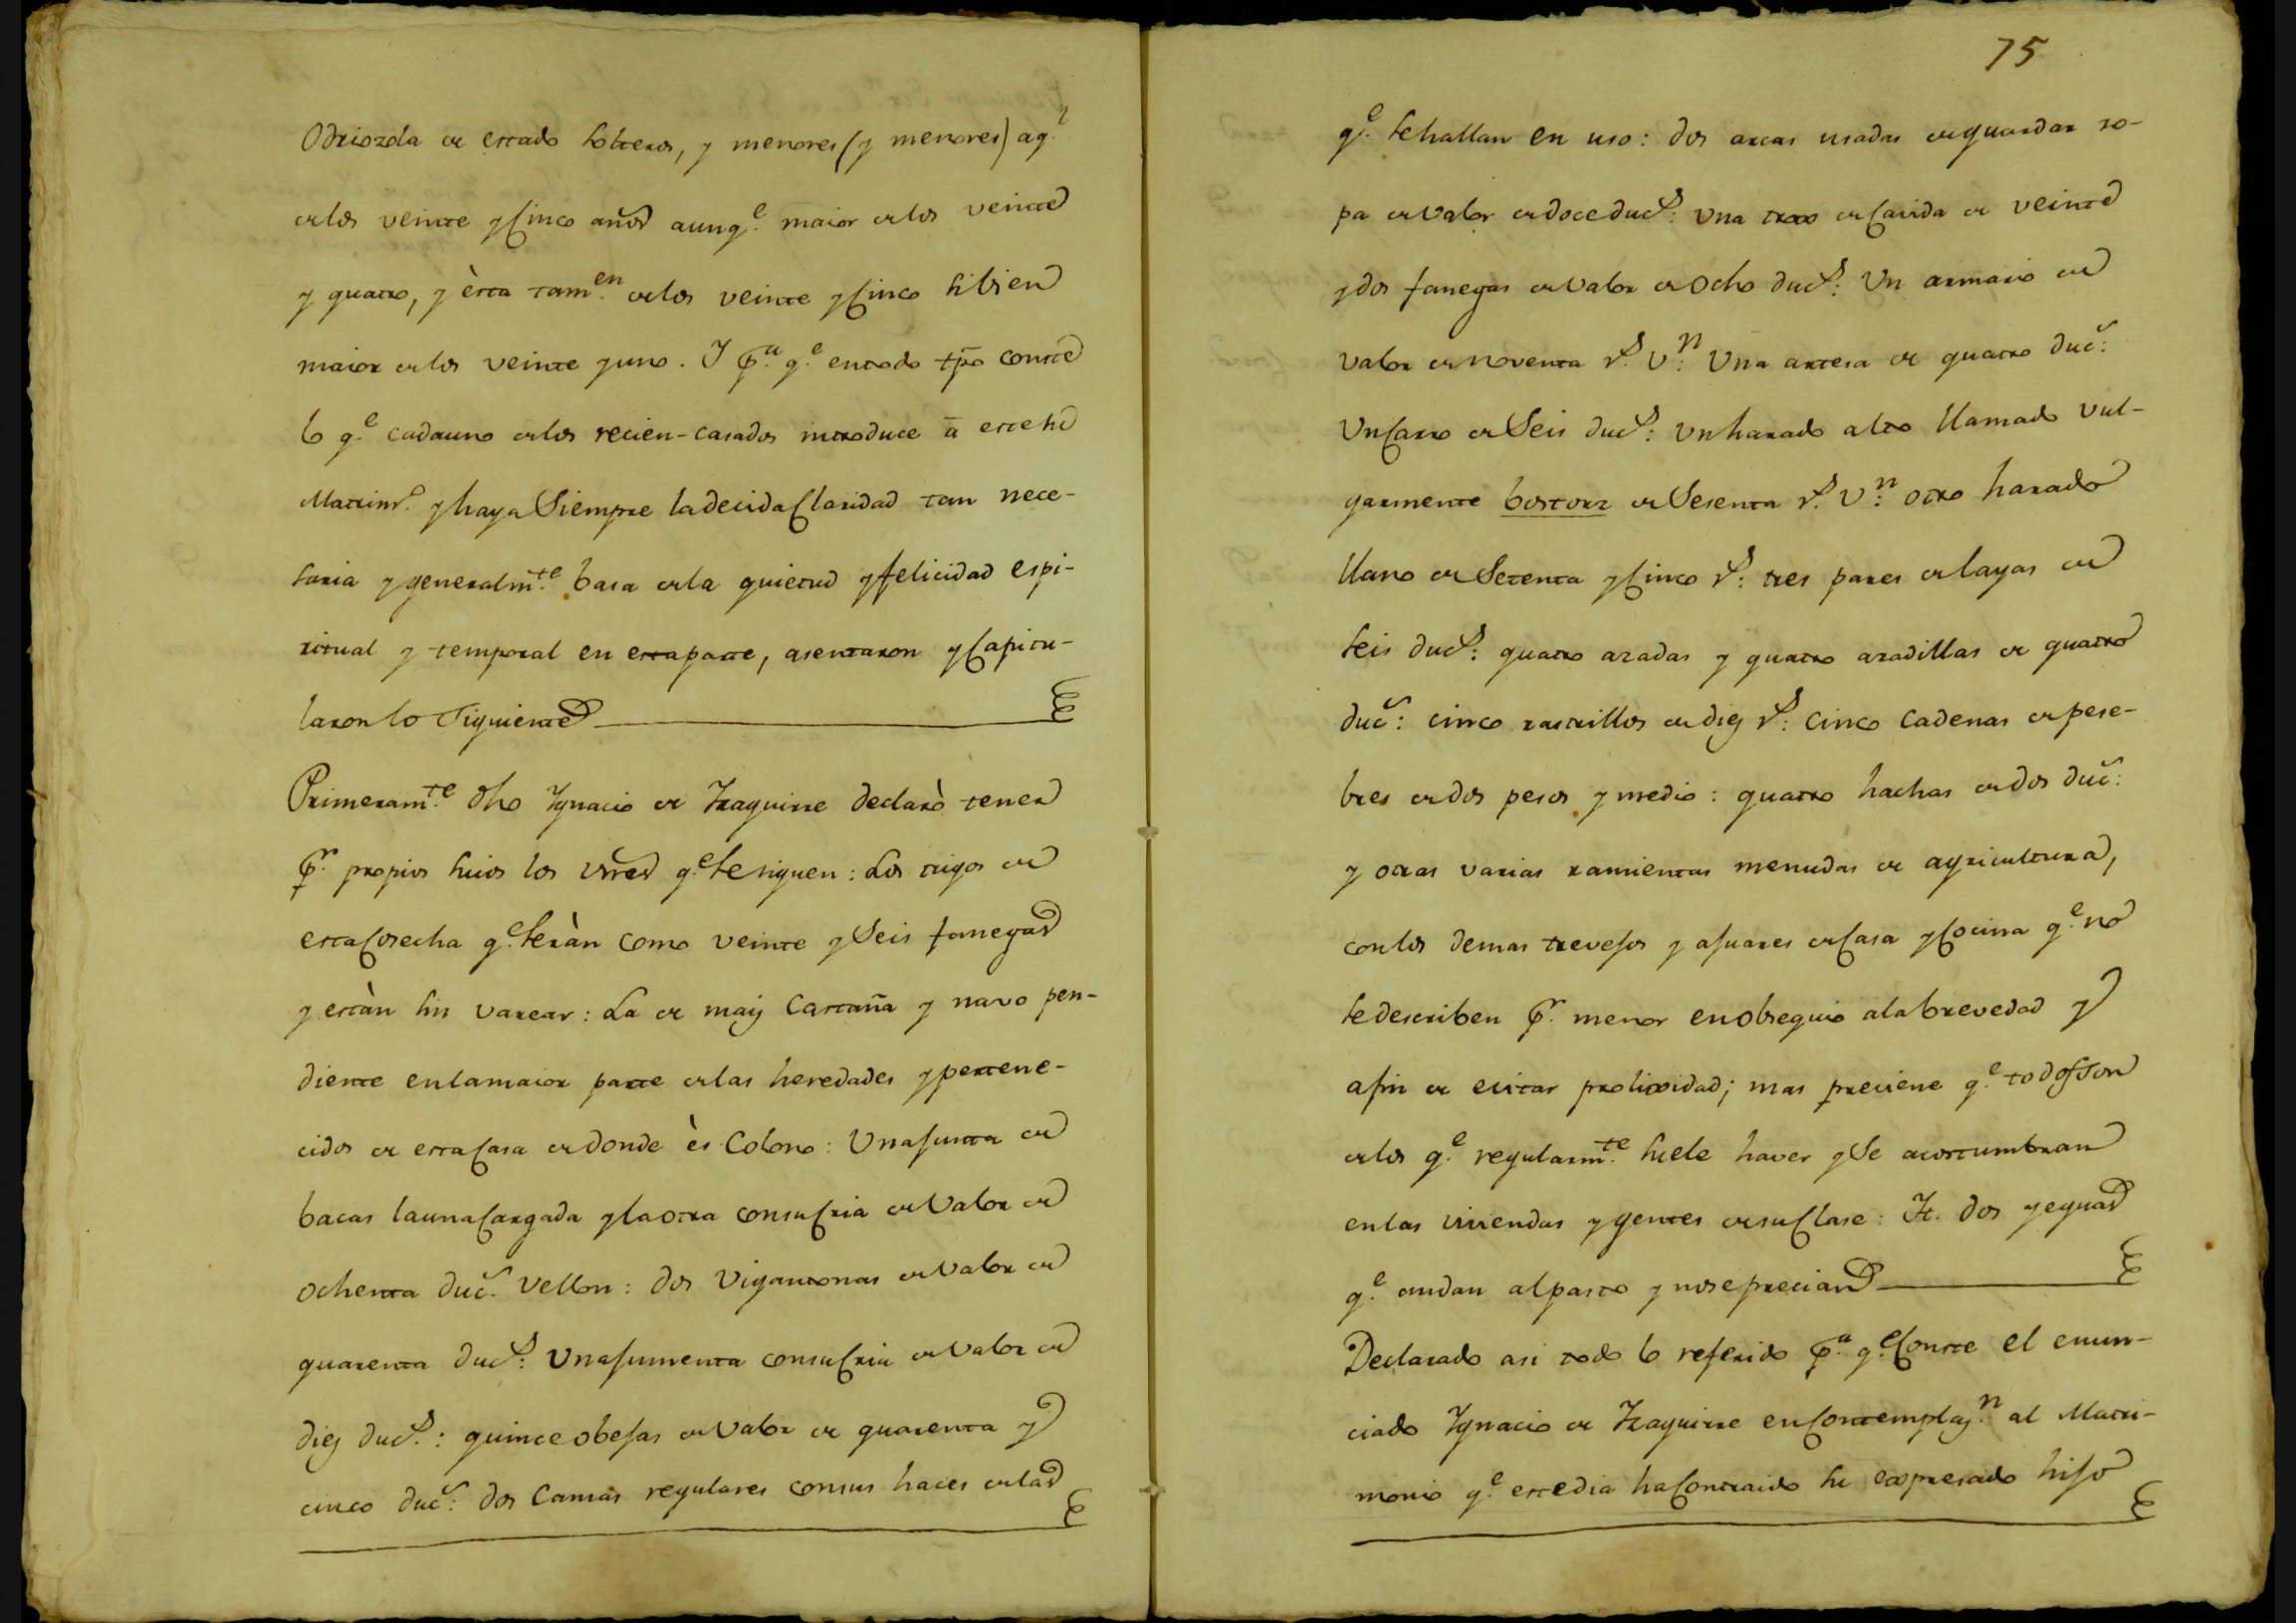 Odriozola de estado solteros, y menores (y menores) aql.
de los veinte y Cinco años aunqe. maior de los veinte
y quatro, y èsta tamen. de los veinte y Cinco si bien
maior de los veinte y uno. I pa. qe. en todo tpo conste
lo qe. cada uno de los recien-casados introduce ā este su
Matrimo. y haya Siempre la devida Claridad tan nece-
saria y generalmte. basa de la quietud y felicidad espi-
ritual y temporal en esta parte, asentaron y Capitu-
laron lo Siguiente
Primeramte. dho Ygnacio de Yzaguirre declarò tener
pr. propios suios los vnes qe. se siguen: Los trigos de
esta Cosecha qe. seràn como veinte y Seis fanegas
y estàn sin varear: La de maiz Castaña y navo pen-
diente en la maior parte de las heredades y pertene-
cidos de esta Casa de donde ès Colono: Una junta de
bacas la una Cargada y la otra con su Cria de Valor de
ochenta duc. vellon: dos Vigantonas de valor de
quarenta ducs: Una jumenta con su Cria de valor de
diez ducs.: quince obejas de Valor de quarenta y
cinco duc: dos Camas regulares con sus haces de las
75
qe. se hallan en uso: dos arcas usadas de guardar ro-
pa de valor de doce ducs: Una trox de Cavida de veinte
y dos fanegas de valor de ocho ducs: Un armario de
valor de noventa rs. vn: Una artesa de quatro duc:
Un Carro de Seis ducs: Un harado alto llamado vul-
garmente bostorz de Sesenta rs. vn: otro harado
llano de Setenta y Cinco rs: tres pares de layas de
seis ducs: quatro azadas y quatro azadillas de quatro
duc: cinco rastrillos de diez rs: cinco Cadenas de pese-
bres de dos pesos y medio: quatro hachas de dos duc:
y otras varias ramientas menudas de agricultura,
con los demas trevejos y ajuares de Casa y Cocina qe. no
se describen pr. menor en obsequio a la brevedad y
a fin de evitar prolixidad; mas previene qe. todos son
de los qe. regularmte. suele haver y Se acostumbran
en las viviendas y gentes de su Clase: Yt. dos yeguas
qe. andan al pasto y no se precian
Declarado asi todo lo referido pa. qe. Conste el enun-
ciado Ygnacio de Yzaguirre en Contemplazn. al Matri-
monio qe. este dia ha Contraido su expresado hijo